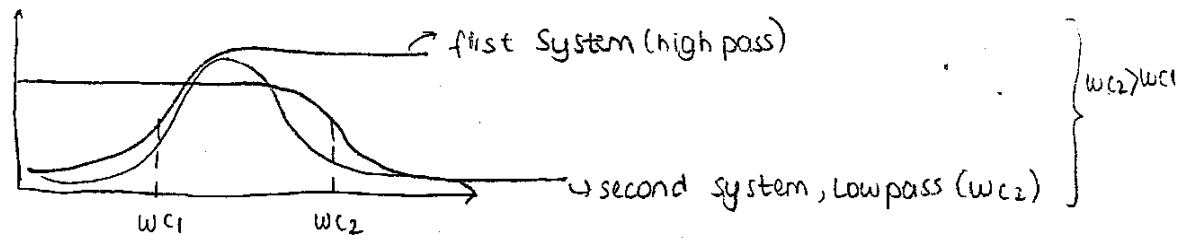 first System (high pass)
wc2>wc1
second system, Lowpass (wc2)
wc1
wc2